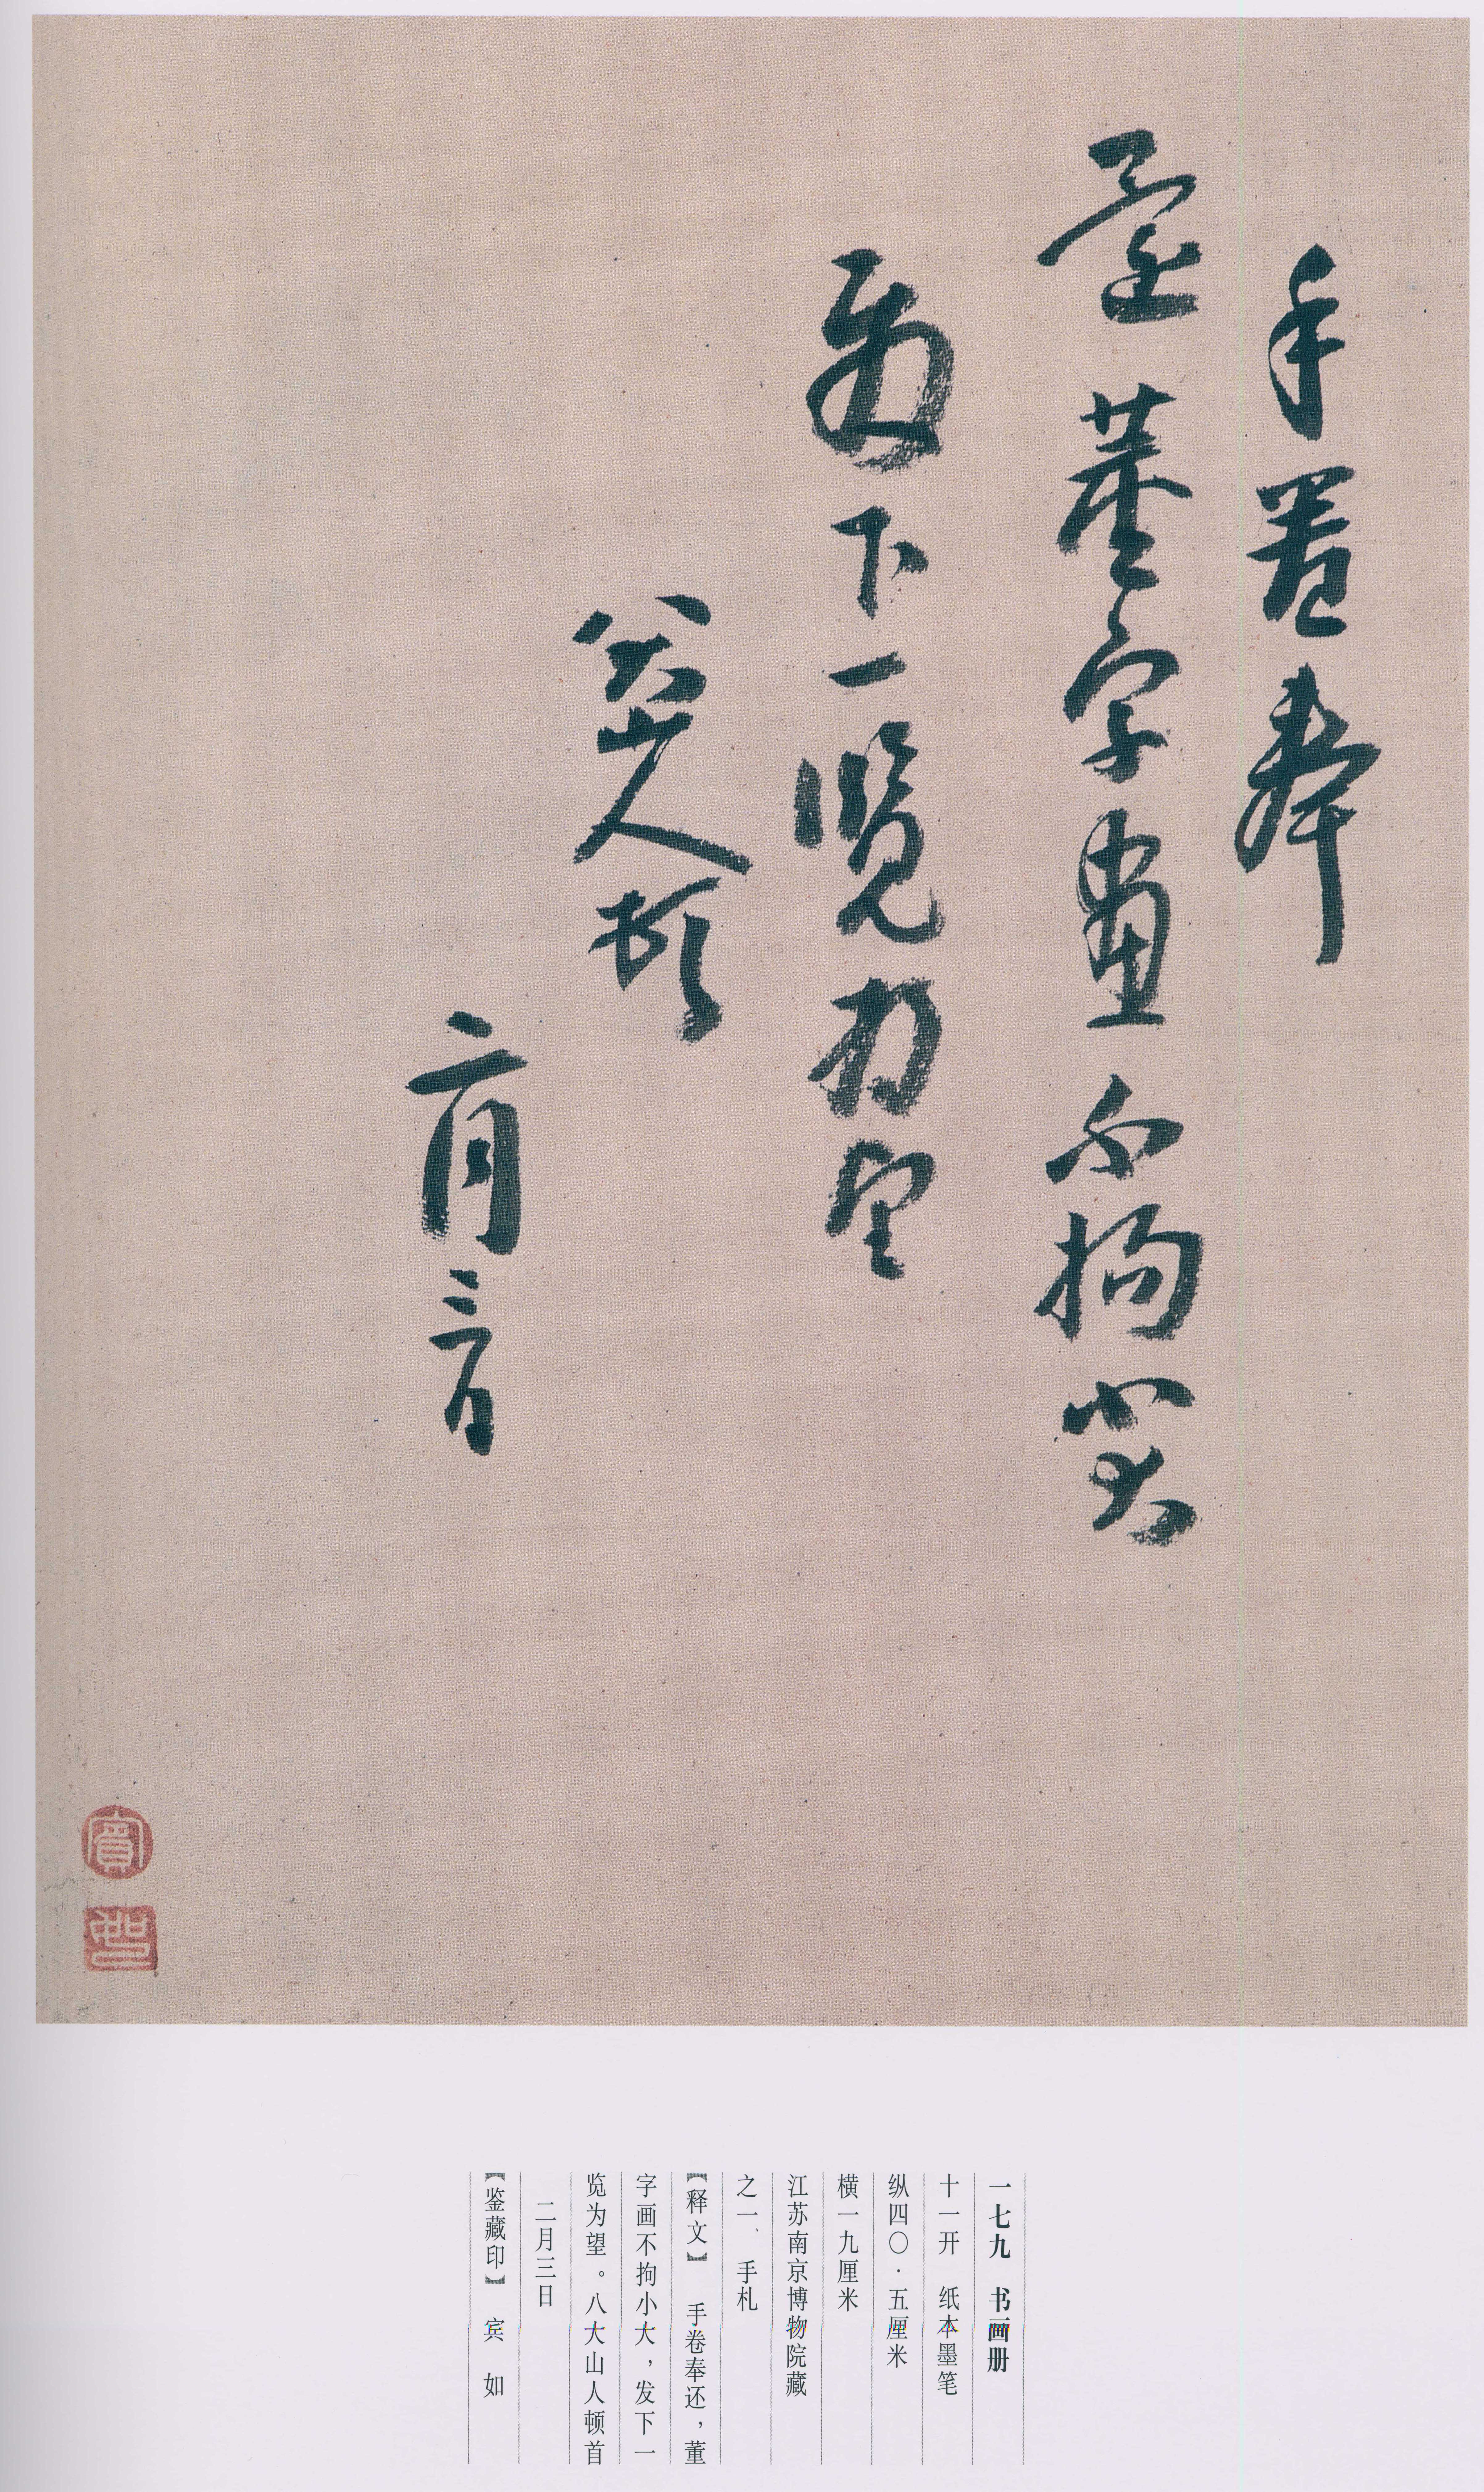 手卷奉
還董字畫不拘小大
發下一覽為望
八大山人頓首
二月三日
賓
如
一七九　书画册
十一开　纸本墨笔
纵四〇·五厘米
横一九厘米
江苏南京博物院藏
之一、手札
【释文】　手卷奉还，董
字画不拘小大，发下一
览为望。八大山人顿首
二月三日
【鉴藏印】　宾　如